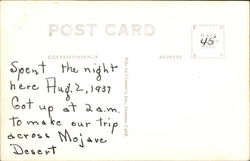 POST CARD
CORRESPONDENCE
ADDRESS
PLACE
45
Spent the night
here Aug. 2, 1937
Got up at 2 a.m.
to make our trip
across Mojave
Desert